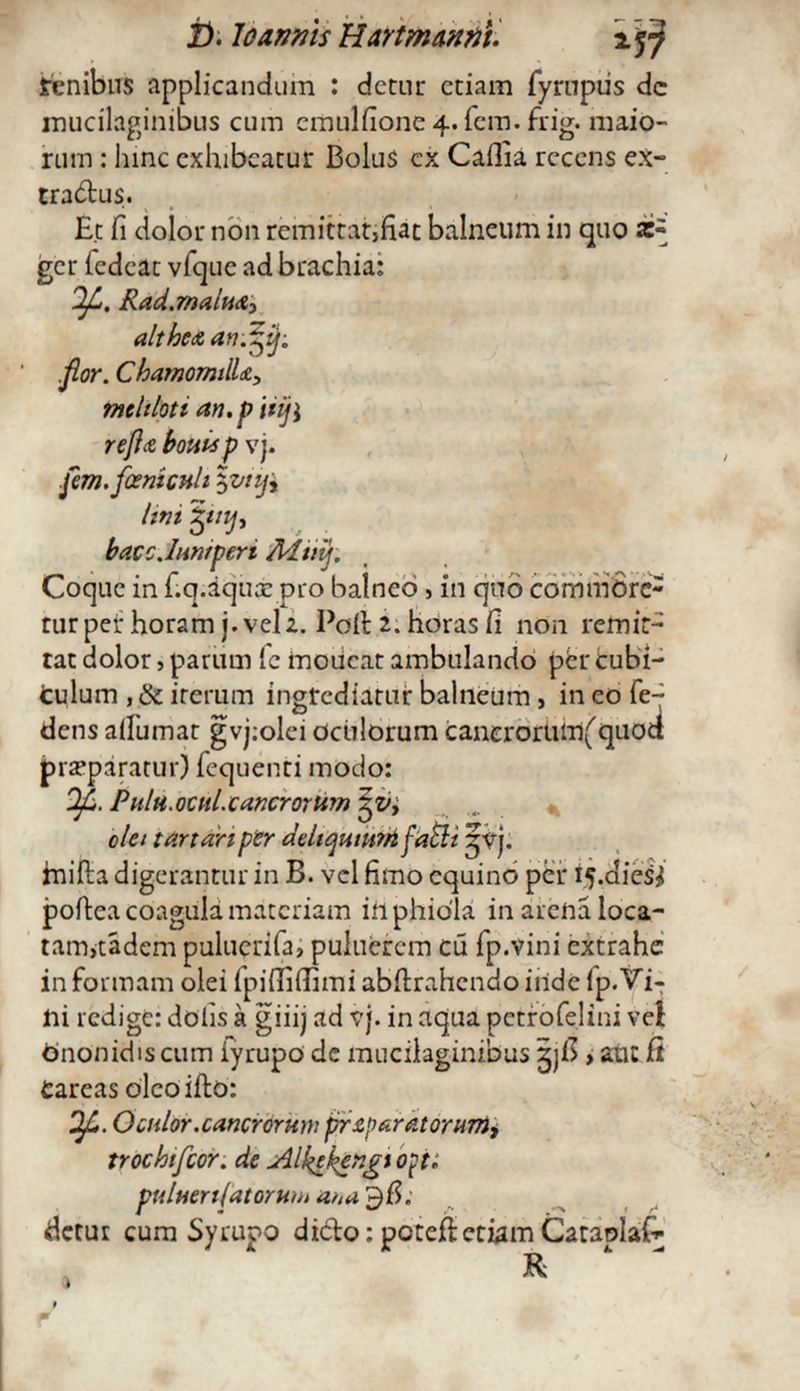 D. Ioannis Hartmanni. 257
renibus applicandum : detur etiam ſyrupus de
mucilaginibus cum emulſione 4. ſem. frig. maio-
rum : hinc exhibeatur Bolus ex Caſſia recens ex-
tractus.
Et ſi dolor non remittat, fiat balneum in quo æ-
ger ſedeat vſque ad brachia:
℞. Rad. maluæ,
altheæ an. ℥ij.
flor. Chamomillæ,
meliloti an. p iiij
reſtæ bouis p vj.
ſem. fœniculi ʒviij
lini ℥iiij,
bacc. Iuniperi M iiij.
Coque in ſ.q. aquæ pro balneo, in quo commore-
tur per horam j. vel 2. Poſt 2. horas ſi non remit-
tat dolor, parum ſe moueat ambulando per cubi-
culum, & iterum ingrediatur balneum, in eo ſe-
dens aſſumat gvj: olei oculorum cancrorum (quod
præparatur) ſequenti modo:
℞. Pulu. ocul. cancrorum ℥v
olei tartari per deliquium facti ℥vj.
miſta digerantur in B. vel fimo equino per 15. dies
poſtea coagula materiam in phiola in arena loca-
tam, tãdem pulueriſa, puluerem cũ ſp. vini extrahe
in formam olei ſpiſſiſſimi abſtrahendo inde ſp. Vi-
ni redige: doſis à giiij ad vj. in aqua petroſelini vel
Ononidis cum ſyrupo de mucilaginibus ℥jß, aut ſi
careas oleo iſto:
℞. Oculor. cancrorum præparatorum,
trochiſcor. de Alkekengi opt.
pulueriſatorum ana ℈ß.
detur cum Syrupo dicto : poteſt etiam Cataplaſ-
R